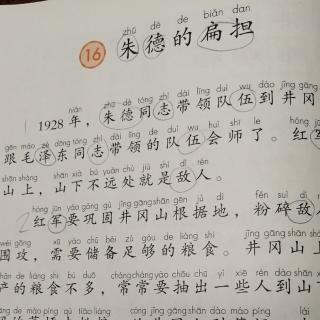 zhū dé de biǎn dan
16 朱德的扁担
nián zhū dé tóng zhì dài lǐng duì wu dào jǐng gāng
1928 年，朱德同志带领队伍到井冈
gēn máo zé dōng tóng zhì dài lǐng de duì wu huì shī le hóng
跟毛泽东同志带领的队伍会师了。红军
shān shàng shān xià bù yuǎn chù jiù shì dí rén
山上，山下不远处就是敌人。
hóng jūn yào gǒng gù jǐng gāng shān gēn jù dì fěn suì dí
2 红军要巩固井冈山根据地，粉碎敌
wéi gōng xū yào chǔ bèi zú gòu de liáng shi jǐng gāng shān
围攻，需要储备足够的粮食。井冈山上
chǎn de liáng shi bù duō cháng cháng yào chōu chū yì xiē rén dào shān
产的粮食不多，常常要抽出一些人到山
de máo píng qù tiāo liáng dào máo píng